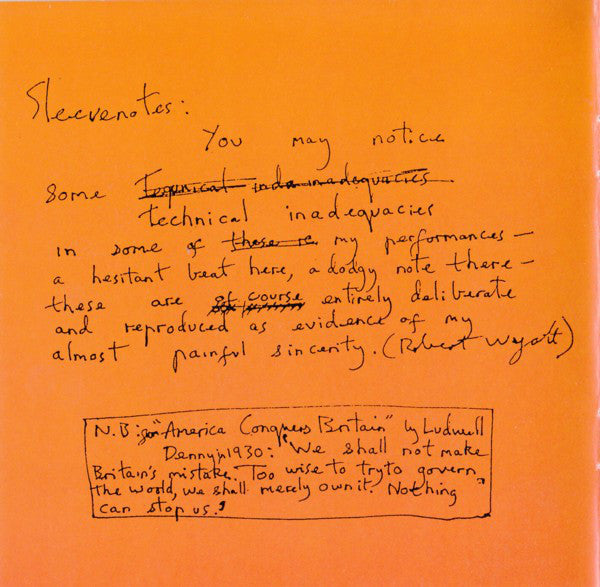 Sleevenotes:
You may notice
some Tequnical inda inadequacies
technical inadequacies
in some of these re my performances —
a hesitant beat here, a dodgy note there —
these are of course entirely deliberate
and reproduced as evidence of my
almost painful sincerity. (Robert Wyatt)
N.B: "America Conquers Britain" by Ludwell
Denny in 1930: "We shall not make
Britain's mistake. Too wise to try to govern
the world, we shall merely own it. Nothing
can stop us."